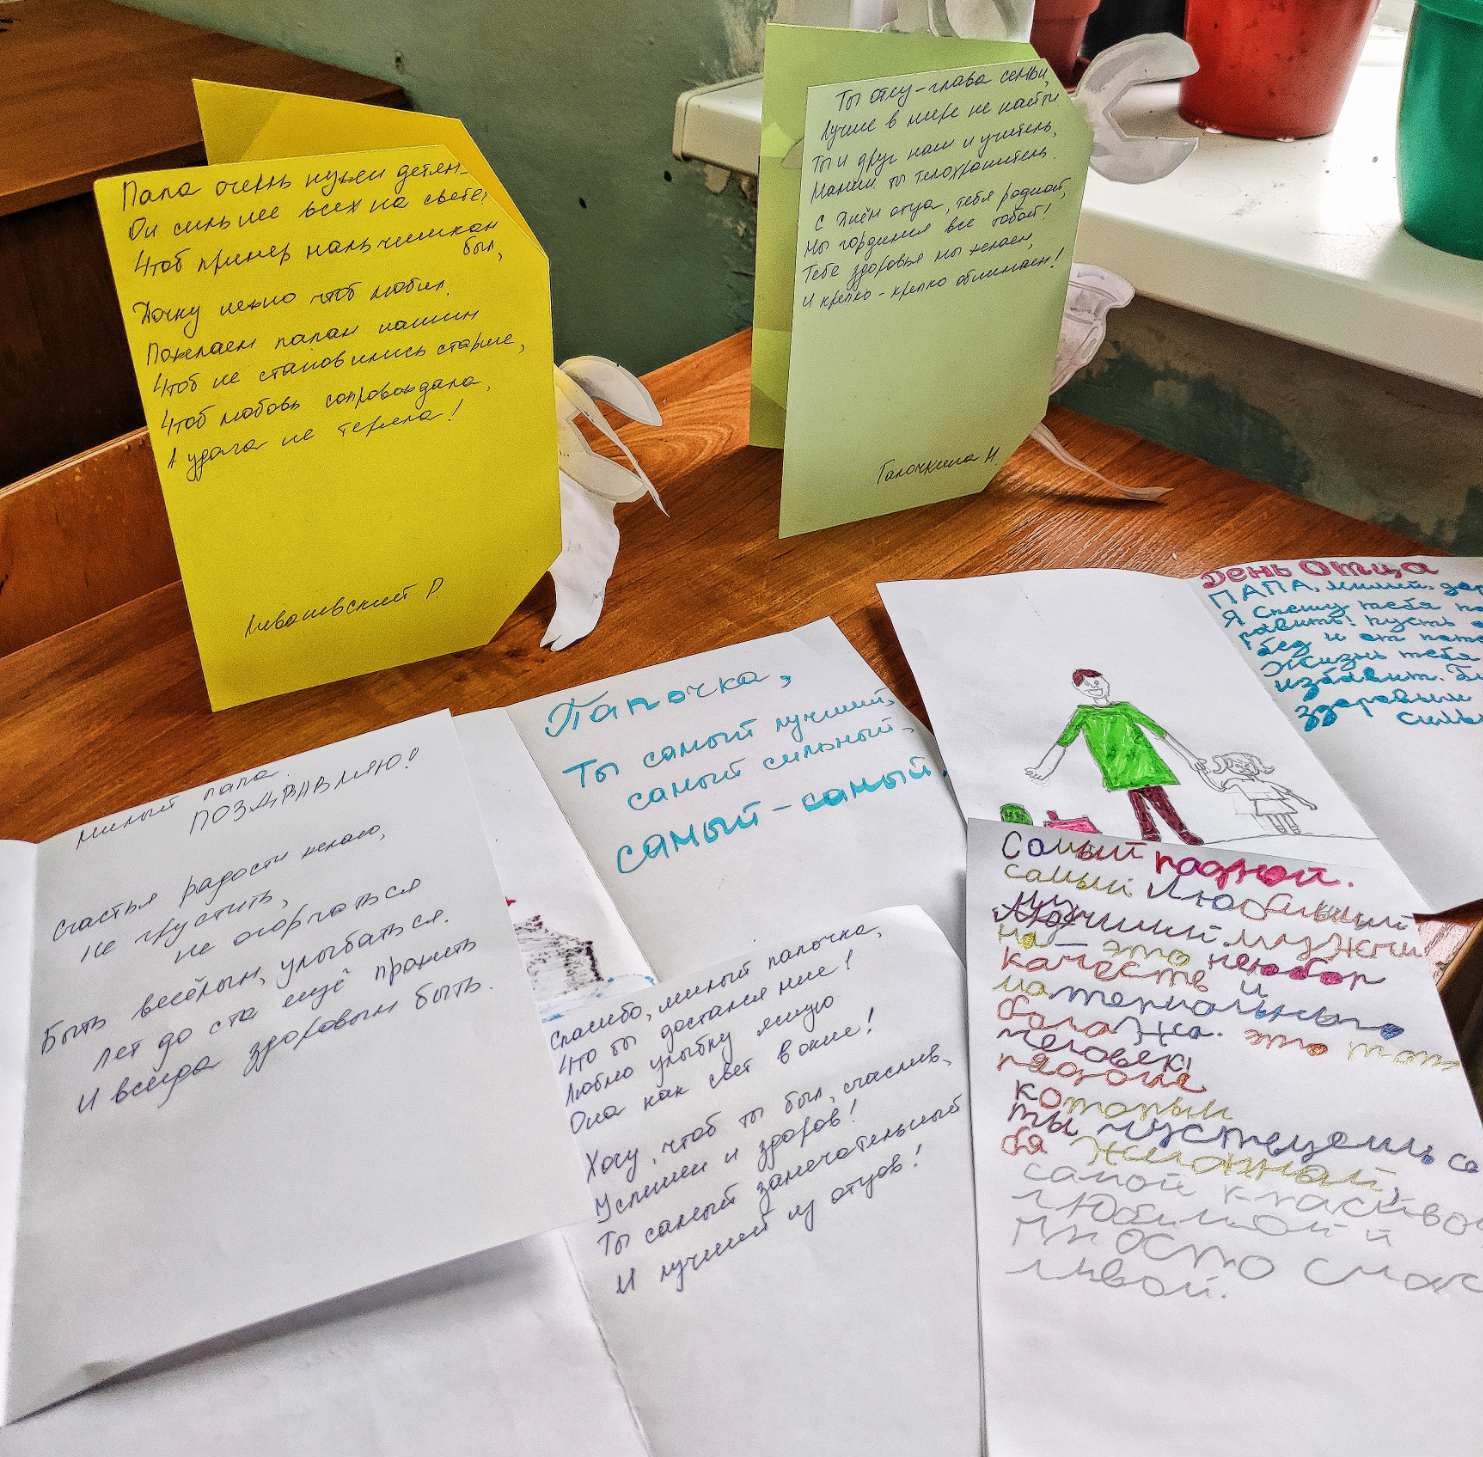 Папа очень нужен детям
Он сильнее всех на свете,
Чтоб пример мальчишкам
был,
Дочку нежно чтоб любил.
Пожелаем папам нашим
Чтоб не становились старше,
Чтоб любовь сопровождала,
А удача не теряла!
Ливашевский Р.
Ты отец - глава семьи,
Лучше в мире не найти
Ты и друг наш и учитель,
Мамин ты телохранитель.
С Днём отца, тебя родной,
Мы гордимся все тобой!
Тебе здоровья мы желаем,
И крепко-крепко обнимаем!
Галочкина Н.
День Отца
ПАПА, милый, дор
Я спешу тебя по
здравить! Пусть
бед и от
Жизнь тебя
избавит. Б
здоровым
силь
Папочка,
Ты самый лучший,
самый сильный,
самый-самый.
Милый папа.
ПОЗДРАВЛЯЮ!
Счастья радости желаю,
Не грустить,
не огорчаться
Быть весёлым, улыбаться.
лет до ста ещё прожить
И всегда здоровым быть.
Спасибо, милый папочка,
Что ты достался мне!
Люблю улыбку ясную
Она как свет в окне!
Хочу, чтоб ты был, счаслив,
Успешен и здоров!
Ты самый замечательный
И лучший из отцов!
Самый родной.
самый Любимый
Лучший.
на - это не
качеств и
материального
блага. это тот
человек,
рядом с
которым
ты чуствуешь се
бя
самой красиво
любимой и
просто счас
ливой.